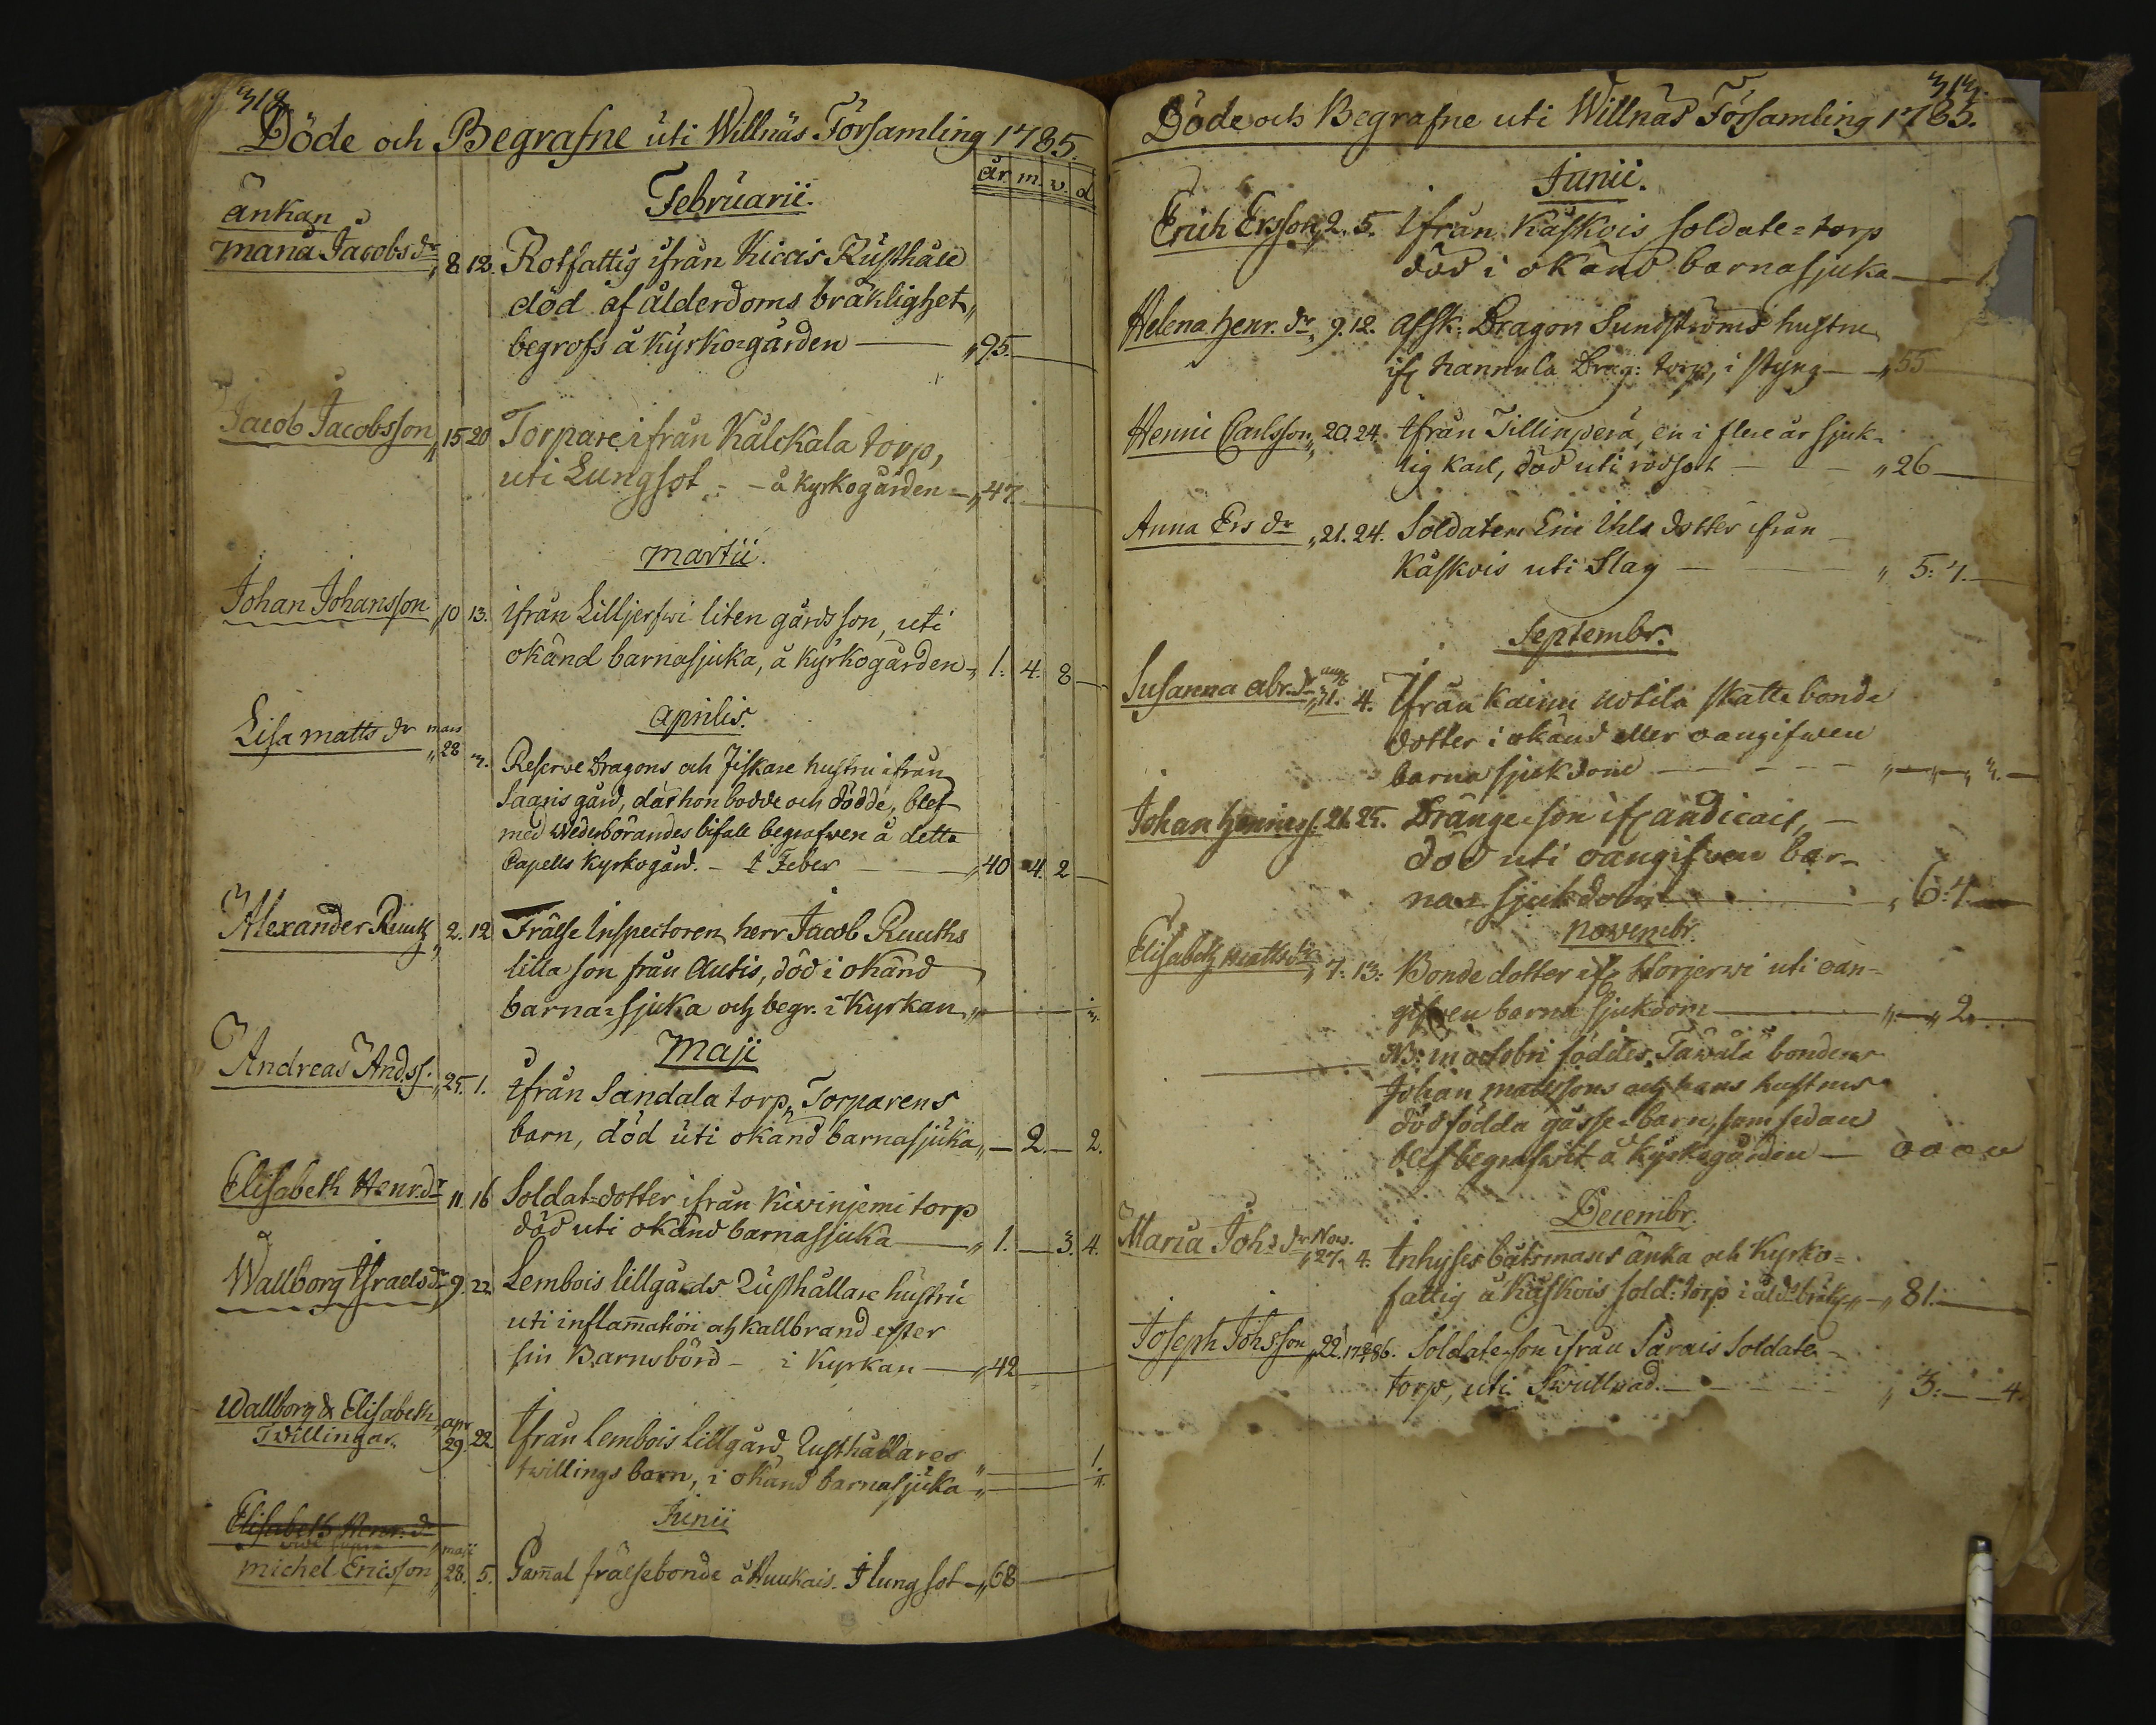 312
Döde och Begrafne uti Willnäs Församling 1785.
år. m. v. d
Februarii.
änkan
Maria Jacobs dr 8 12. Rotfattig ifrån Kicais Rusthåld
död af ålderdoms bräklighet,
begrofs å kyrko=gården — 95.
Jacob Jacobsson 15 20 Torpare ifrån Kälckala torp,
uti Lungsot - - å kyrkogården — 47.
Martii.
Johan Johansson 10 13. ifrån Lilljerfwi liten gårds son, uti
okänd barnasjuka, å kyrkogården 1. 4. 8
Aprilis.
Lisa Matts dr mars 28 3. Reserve Dragons och Fiskare hustru ifrån
Saaris gård, där hon bodde och dödde, blef
med wederbörandes bifall begrafwen å detta
Capells kyrkogård. - i Feber — 40 4. 2
Alexander Ruuth 2. 12 Frälse Inspectoren herr Jacob Ruuths
lilla son från Autis, död i okänd
barna=sjuka och begr. i Kyrkan — 3.
Maji
Andreas Andss. 25. 1. Ifrån Sandala torp, Torparens
barn, död uti okänd barnasjuka — 2. — 2.
Elisabeth Henr.dr 11. 16 Soldat=dotter ifrån Kivinjemi torp
död uti okänd barnasjuka — 1. — 3. 4.
Wallborg Israels dr 9. 22. Lembois lillgårds Rusthållare hustru
uti inflam̄ation och kallbrand efter
sin Barnsbörd - i Kyrkan — 42
Wallborg & Elisabeth
Twillingar. apr 29. 22. Ifrån Lembois lillgård Rusthållares
twillings barn, i okänd barnasjuka 1.
Junii
Elisabeth Henr. dr
maji
Michel Ericsson 28. 5. Gam̄al frälsebonde å Huukais. I lungsot — 68
313.
Döde och Begrafne uti Willnäs Församling 1785.
Junii.
Erich Ersson 2. 5. Ifrån Käskois soldate=torp
död i okänd barnasjuka —
Helena Henr. dr 9. 12. Afsk. Dragon Sundströms hustru
ifr Hannula Drag: torp, i styng — 55
Henric Carlsson 20. 24. Ifrån Tillinperä, en i flere år sjuk=
lig karl, död uti rödsot — 26
Anna Ers dr 21. 24. Soldaten Eric Uhls dotter ifrån
Käskois uti Slag — 5: 4.
Septembr.
Susanna abr. dr aug 31. 4. Ifrån Kaicui Uotila skatte bonde
dotter i okänd eller oangifwen
barna sjukdom — 3.
Johan Henricss. 21. 25. Dränge=son ifr andicais, —
död uti oangifwen bar=
na= sjukdom — 6. 4.
Novembr.
Elisabeth Mattsdr 7. 13: Bonde dotter ifr Horjerwi uti oan=
gifwen barna sjukdom — 2.
NB: in octobri föddes Tawala bondens
Johan Mattssons och hans hustrus
dödfödda gåsse=barn, som sedan
blef begrafwit å kyrkogården — 0 0 0 0
Decembr.
Maria Johs dr Nov. 27. 4. Inhyses båtsmans änka och Kyrko=
fattig å Käskois sold: torp i åld: bräkl — 81.
Joseph Johsson 22. 1786. Soldate=son ifrån Särais Soldate=
torp, uti Swullnad. — 3: — 4.